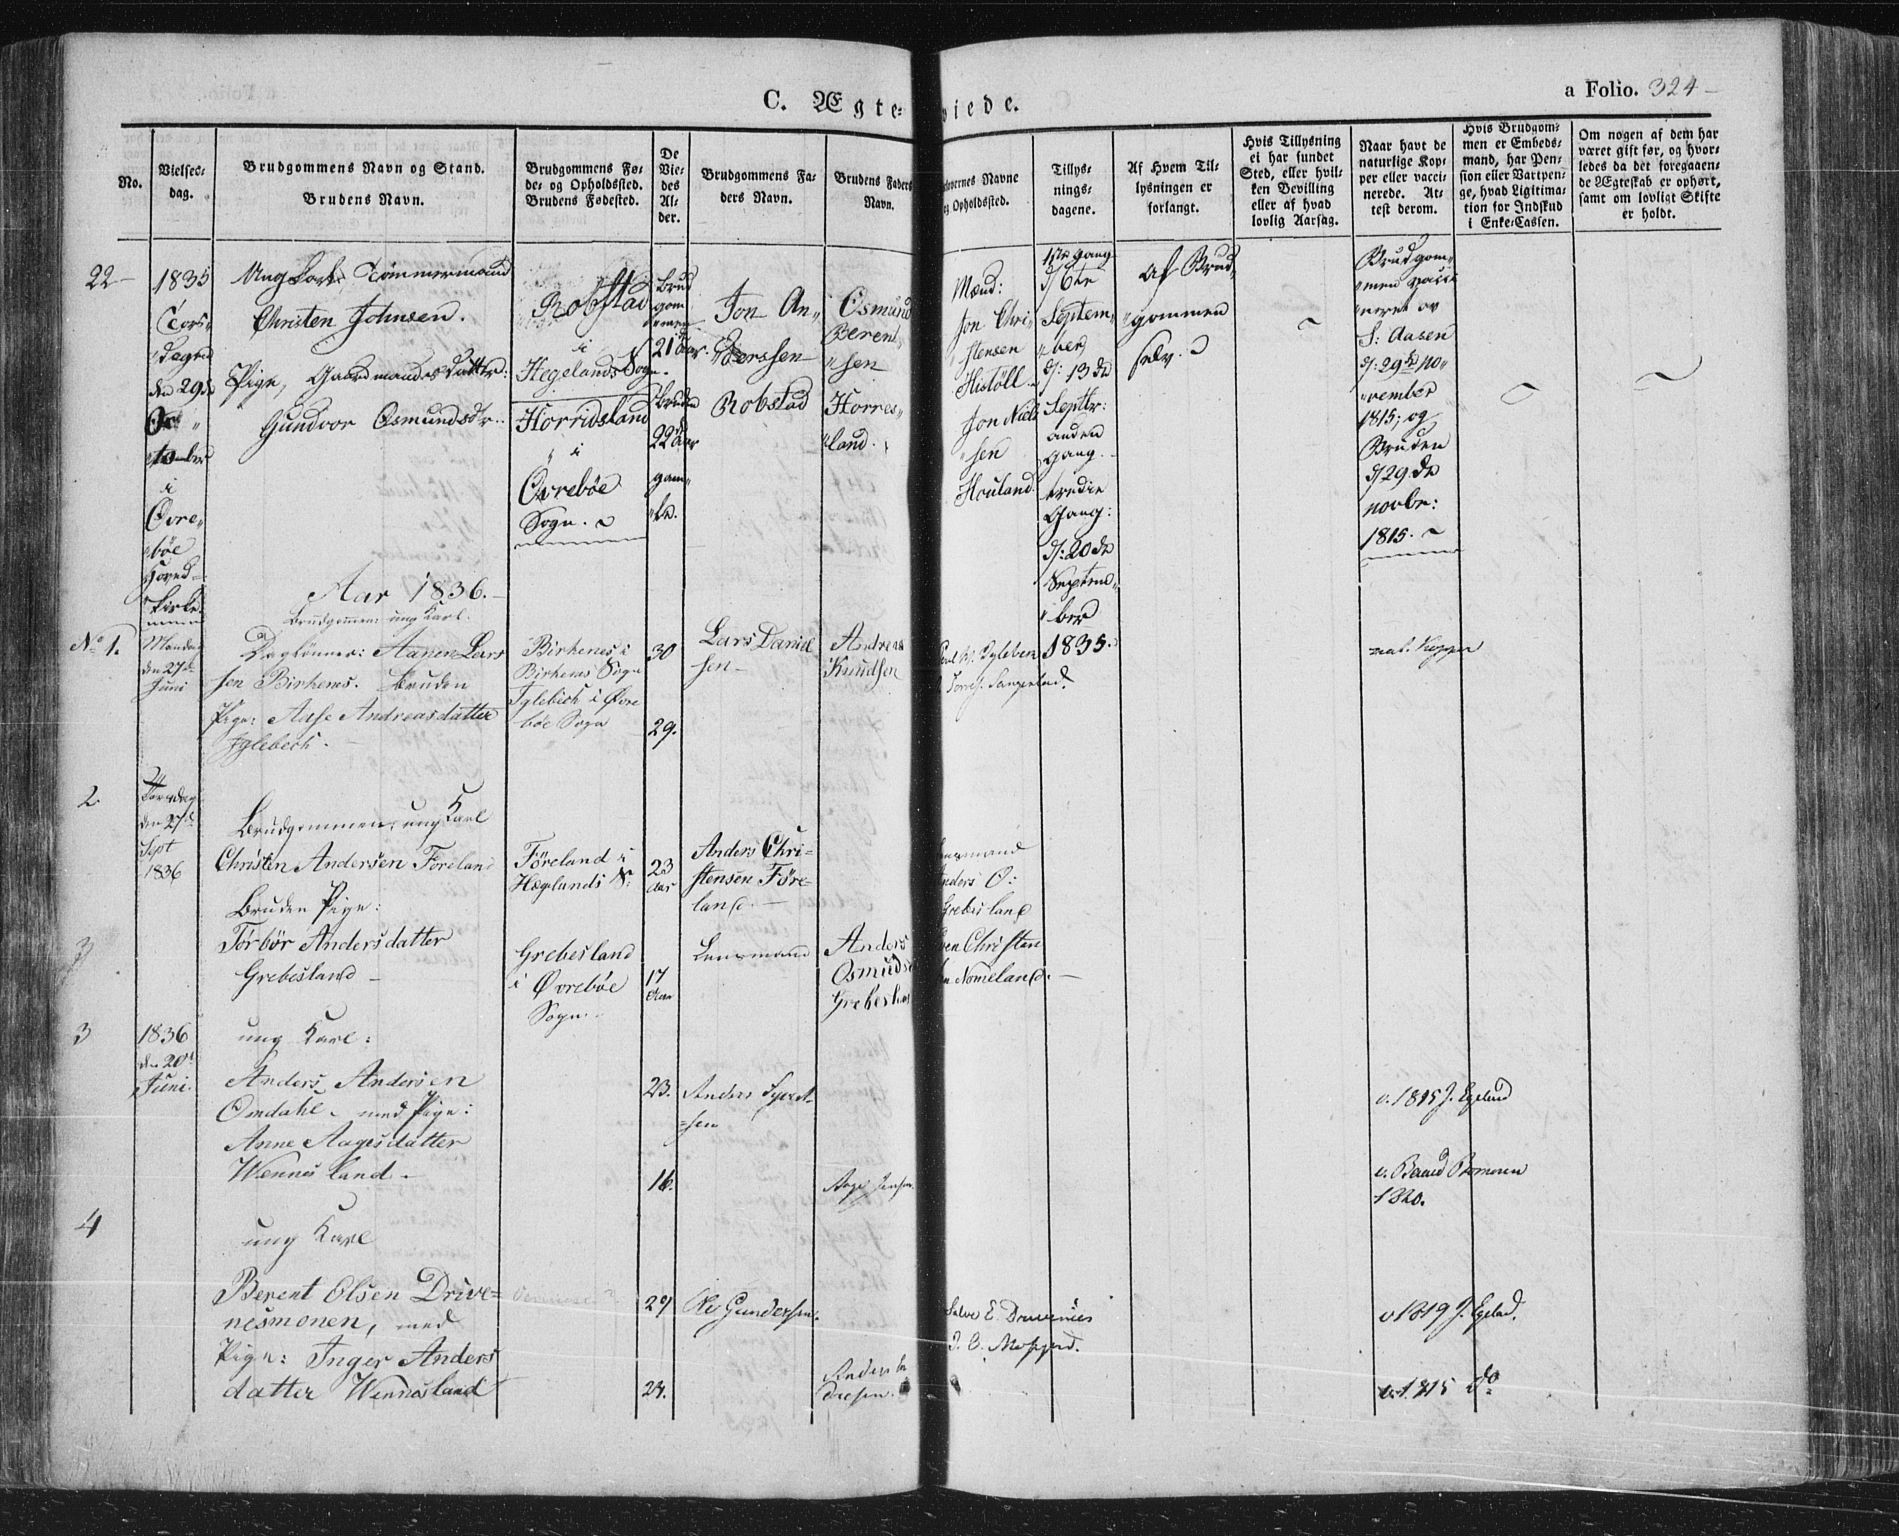 C. Ægte- viede.
a Folio. 324
No.
Vielses-
dag.
Brudgommens Navn og Stand.
Brudens Navn.
Brudgommens Fø-
de- og Opholdssted.
Brudens Fødested.
De
Vie-
des
Al-
der.
Brudgommens Fa-
ders Navn.
Brudens Faders
Navn.
Navne
Opholdssted.
Tillys-
nings-
dagene.
Af Hvem Til-
lysningen er
forlangt.
Hvis Tillysning
ei har fundet
Sted, eller hvil-
ken Bevilling
eller af hvad
lovlig Aarsag.
Naar havt de
naturlige Kop-
per eller vacci-
nerede. At-
test derom.
Hvis Brudgom-
men er Embeds-
mand, har Pen-
sion eller Vartpen-
ge, hvad Ligitima-
tion for Indskud
i Enke-Cassen.
Om nogen af dem har
været gift før, og hvor-
ledes da det foregaaen-
de Ægteskab er ophørt,
samt om lovligt Skifte
er holdt.
22
1835
Tors-
dagen
den 29de
Oc-
tober
i
Øvre-
bøe
Hoved-
Kirke
Ung Karl Tömmermand
Christen Johnsen.
Pige, Gaardmandsdatter:
Gundvor Osmundsdr.
Robstad
i
Hegelands Sogn.
Horridsland
i
Øvrebøe
Sogn.
Brud
gom
men
21 Aar.
Bruden
22 Aar
gam-
le.
Jon An-
derssen
Robstad
Osmund
Berent-
sen
Horres-
land.
Mænd:
Jon Chri-
stensen
Histöll
Jon Niel
sen
Houland
1ste gang
d/6te
Septem-
ber
d/: 13de
Septbr:
anden
Gang.
tredie
Gang:
d/: 20de
Septem-
ber
1835.
Af Brud-
gommen
selv.
Brudgom-
men vacci
neret av
S: Aasen
d/: 29de No-
vember
1815; og
Bruden
d/29de
novbr:
1815.
Aar 1836.
No 1.
Mandag
den 27de
Juni
Brudgommen: ung Karl.
Daglönner: Aanen Lars
sen Birkenes. Bruden
Pige: Aase Andreasdatter
Iglebech.
Birkenes i
Birkenes Sogn
Iglebech i Øvre
bøe Sogn
30
29.
Lars Daniel
sen
Andreas
Knudsen
nat. Kopper
2
den 27de
Sept
1836
Brudgommen, ung Karl
Christen Andersen Foreland
Bruden Pige:
Torbör Andersdatter
Grebesland
Föreland i
Hæglands S:
Grebesland
i Øvrebøe
Sogn.
23
Aar
17
Aar
Anders Chri-
stensen Före-
land.
Lensmand
Anders
Osmunds
Grebesland
Lensmand
Anders O:
Grebesland
Christen
Nomeland.
3
3
1836
den 20de
Juni.
ung Karl:
Anders Andersen
Omdahl. med Pige:
Anne Aagesdatter
Wennesland.
23.
16.
Anders Syvert-
sen
Aage Jensen.
v. 1815 J. Egeland
v.
1820.
4
ung Karl
Berent Olsen Drive-
nesmonen, med
Pige: Inger Anders
datter Wennesland
29
24.
Ole Gundersen.
Anders
Salve E. Drivenes
v 1819 J. Egeland.
v. 1815 do